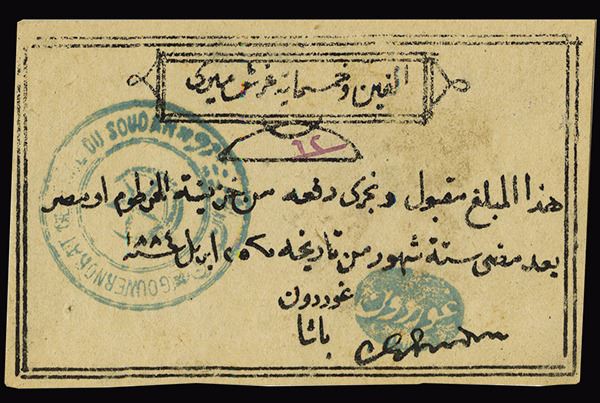 الفين وخمسماية غرش ميرى
هذا المبلغ مقبول ونجرى دفعه من خزينة الخرطوم او مصر
بعد مضى ستة شهور من تاريخه ٢٥ ابريل سنة ١٨٨٤
غوردون
باشا
GOUVERNORAT DU SOUDAN
غوردون